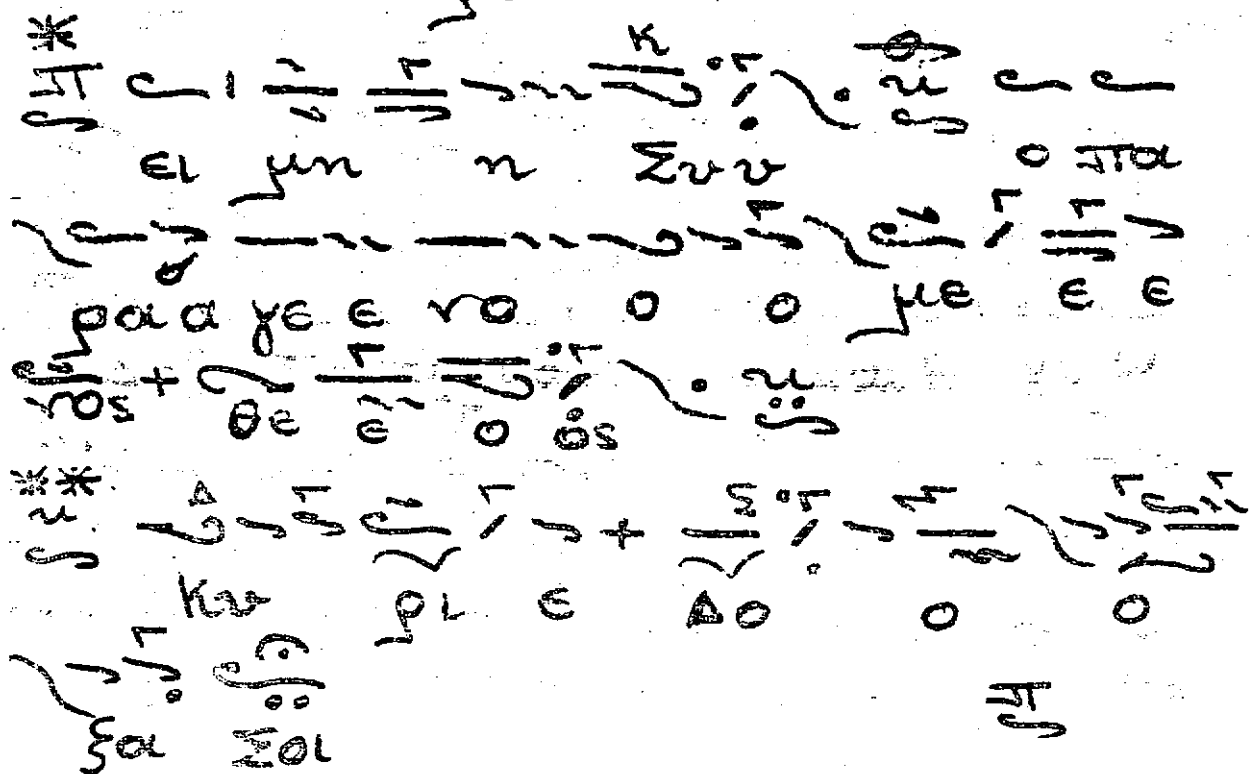 ει μη η Συ υ ο πα
ρα α γε ε νο ο ο με ε ε
νος θε ε ο ος
Κυ ρι ε Δο ο ο
ξα Σοι